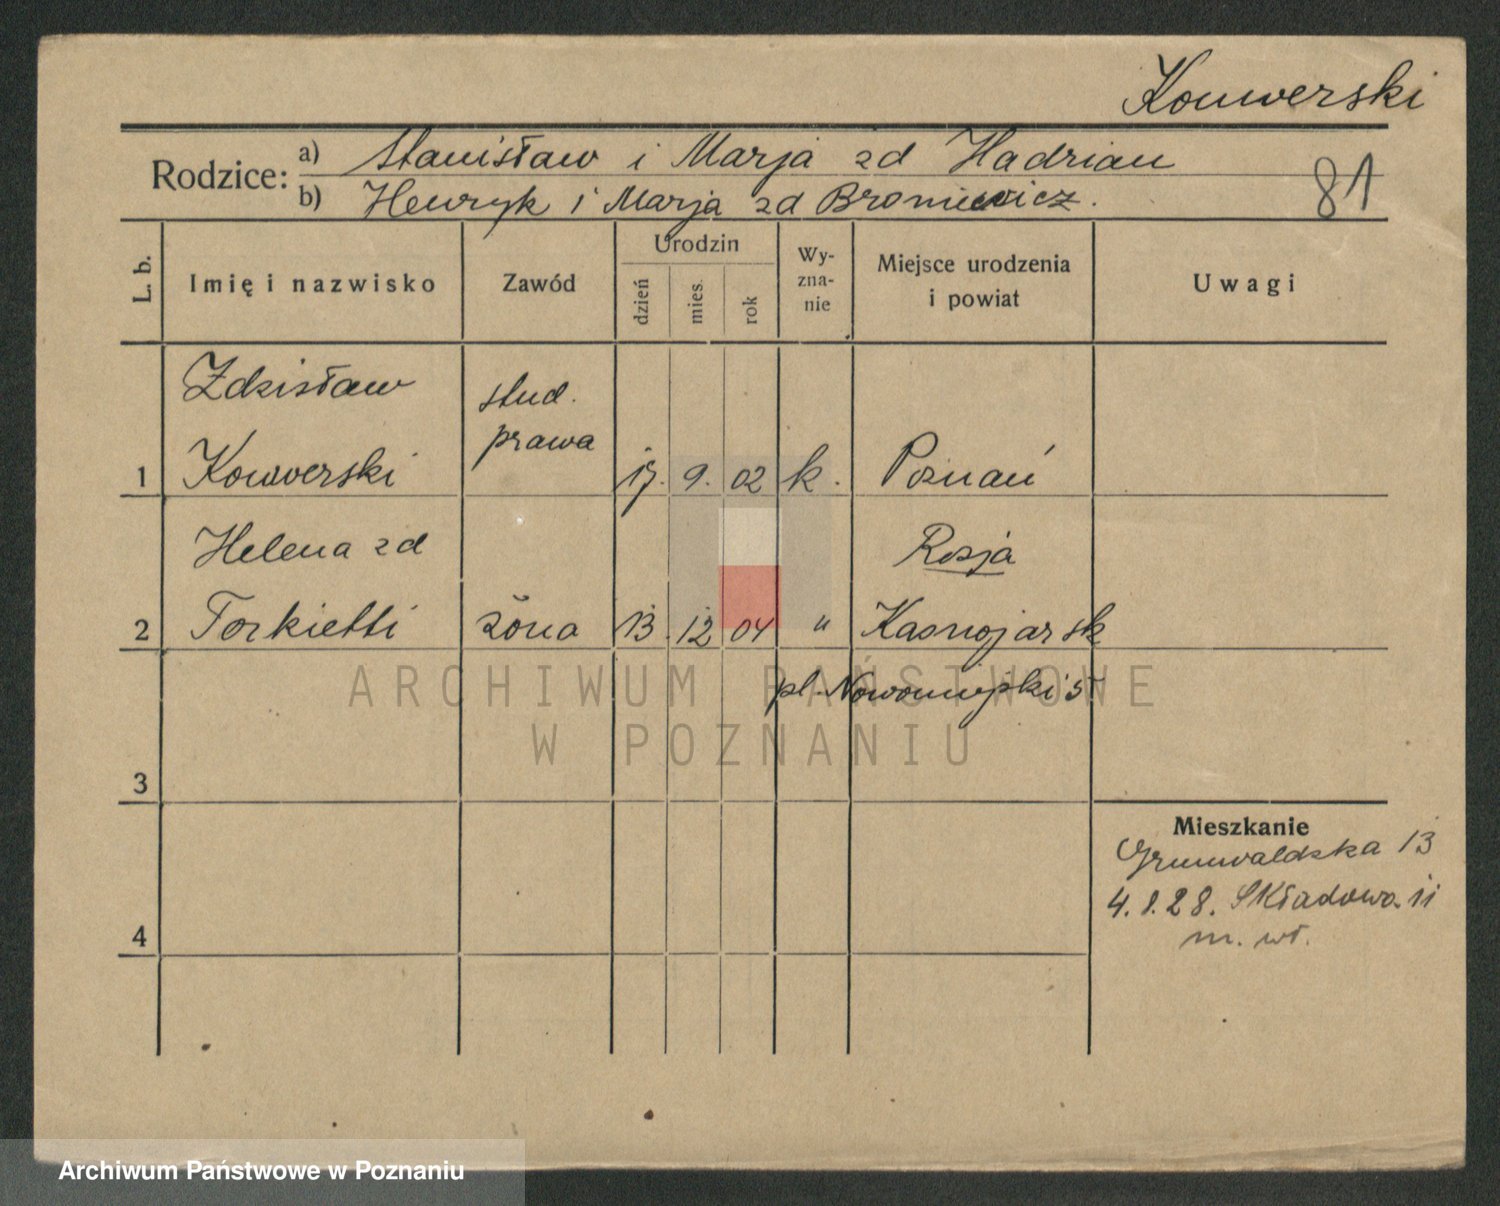 Konwerski
Rodzice: a) Stanisław i Marja zd Hadrian
b) Henryk i Marja zd Broniewicz.
81
L. b.
Imię i nazwisko
Zawód
Urodzin
dzień
mies.
rok
Wy-
zna-
nie
Miejsce urodzenia
i powiat
Uwagi
Zdzisław
stud.
prawa
1 Konwerski 17. 9. 02 k. Poznań
Helena zd Rosja
2 Torkietti żona 13 12 04 " Kasnojarsk
pl. Nowomiejski 5
3
Mieszkanie
Grunwaldzka 13
4. 1. 28. Składowa 11
m. wł.
4
ARCHIWUM PAŃSTWOWE
W POZNANIU
Archiwum Państwowe w Poznaniu